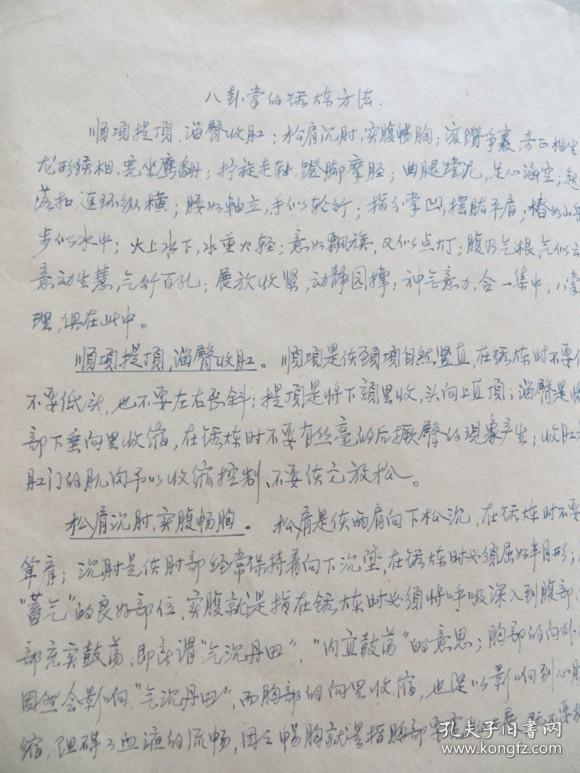 八卦掌的锻炼方法.
順項提頂、溜臀收肛；松肩沉肘，实腹畅胸；滚鑽争裹，奇正相生
龙形猴相，虎坐鹰翻；拧旋走转，蹬脚摩胫；曲腿蹚泥，足心涵空；起
落扣 连环纵横；腰如軸立，手似轮行；指分掌凹，摆肱平肩；樁如山岳
步似水中；火上水下，水重火轻；意如飘旗，又似点灯；腹乃气根气似云
意动生慧，气行百孔；展放收紧，动静园撑；神气意力，合一集中；八掌
理，俱在此中。
順項提頂，溜臀收肛。 順項是使頚項自然竖直，在锻炼时不要
不要低头，也不要左右歪斜；提頂是将下頦里收，头向上直頂；溜臀是
部下垂向里收缩，在锻炼时不要有丝毫的后撅臀的现象产生；收肛
肛门的肌肉予以收缩控制，不要使它放松。
松肩沉肘，实腹畅胸。 松肩是使两肩向下松沉，在锻炼时不要
耸肩；沉肘是使肘部经常保持着向下沉墜，在锻炼时必须屈如半月形；
“蓄气”的良好部位，实腹就是指在锻炼时必须将呼吸深入到腹部，
部充实鼓荡，即所谓“气沉丹田”，“内宜鼓荡”的意思；胸部的向外
固然会影响“气沉丹田”，而胸部的向里收缩，也足以影响到心肺
缩，阻碍了血液的流畅，因之畅胸就是指胸部
孔夫子旧书网
www.kongfz.com